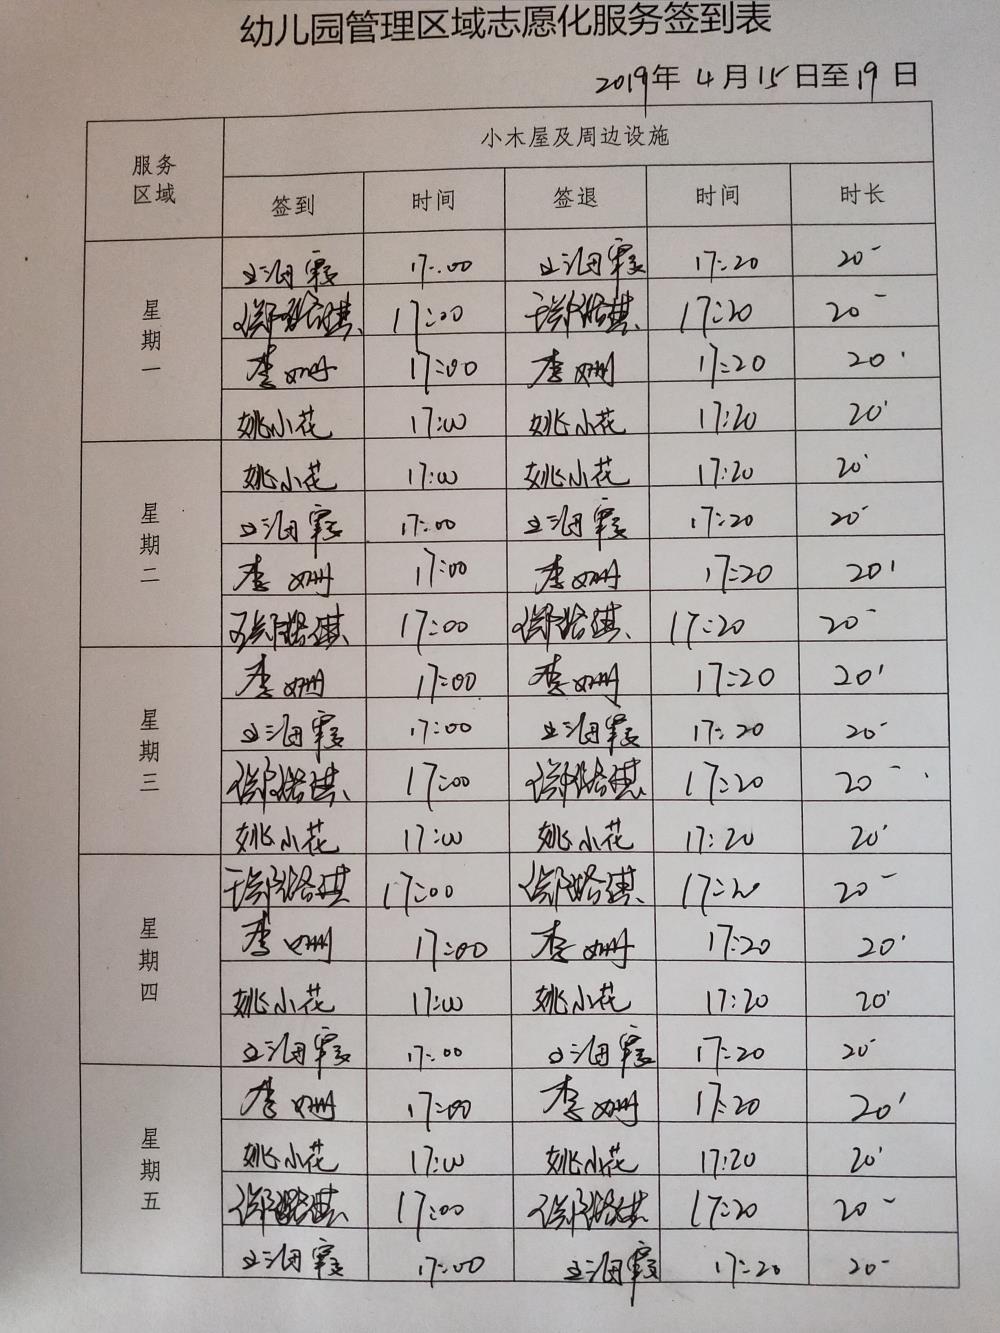 幼儿园管理区域志愿化服务签到表
2019年 4月15日至19日
服务区域 小木屋及周边设施
签到 时间 签退 时间 时长
星期一
17:00 17:20 20'
17:00 17:20 20'
李姗 17:00 李姗 17:20 20'
姚小花 17:00 姚小花 17:20 20'
星期二
姚小花 17:00 姚小花 17:20 20'
17:00 17:20 20'
李姗 17:00 李姗 17:20 20'
17:00 17:20 20'
星期三
李姗 17:00 李姗 17:20 20'
17:00 17:20 20'
17:00 17:20 20'
姚小花 17:00 姚小花 17:20 20'
星期四
17:00 17:20 20'
李姗 17:00 李姗 17:20 20'
姚小花 17:00 姚小花 17:20 20'
17:00 17:20 20'
星期五
李姗 17:00 李姗 17:20 20'
姚小花 17:00 姚小花 17:20 20'
17:00 17:20 20'
17:00 17:20 20'